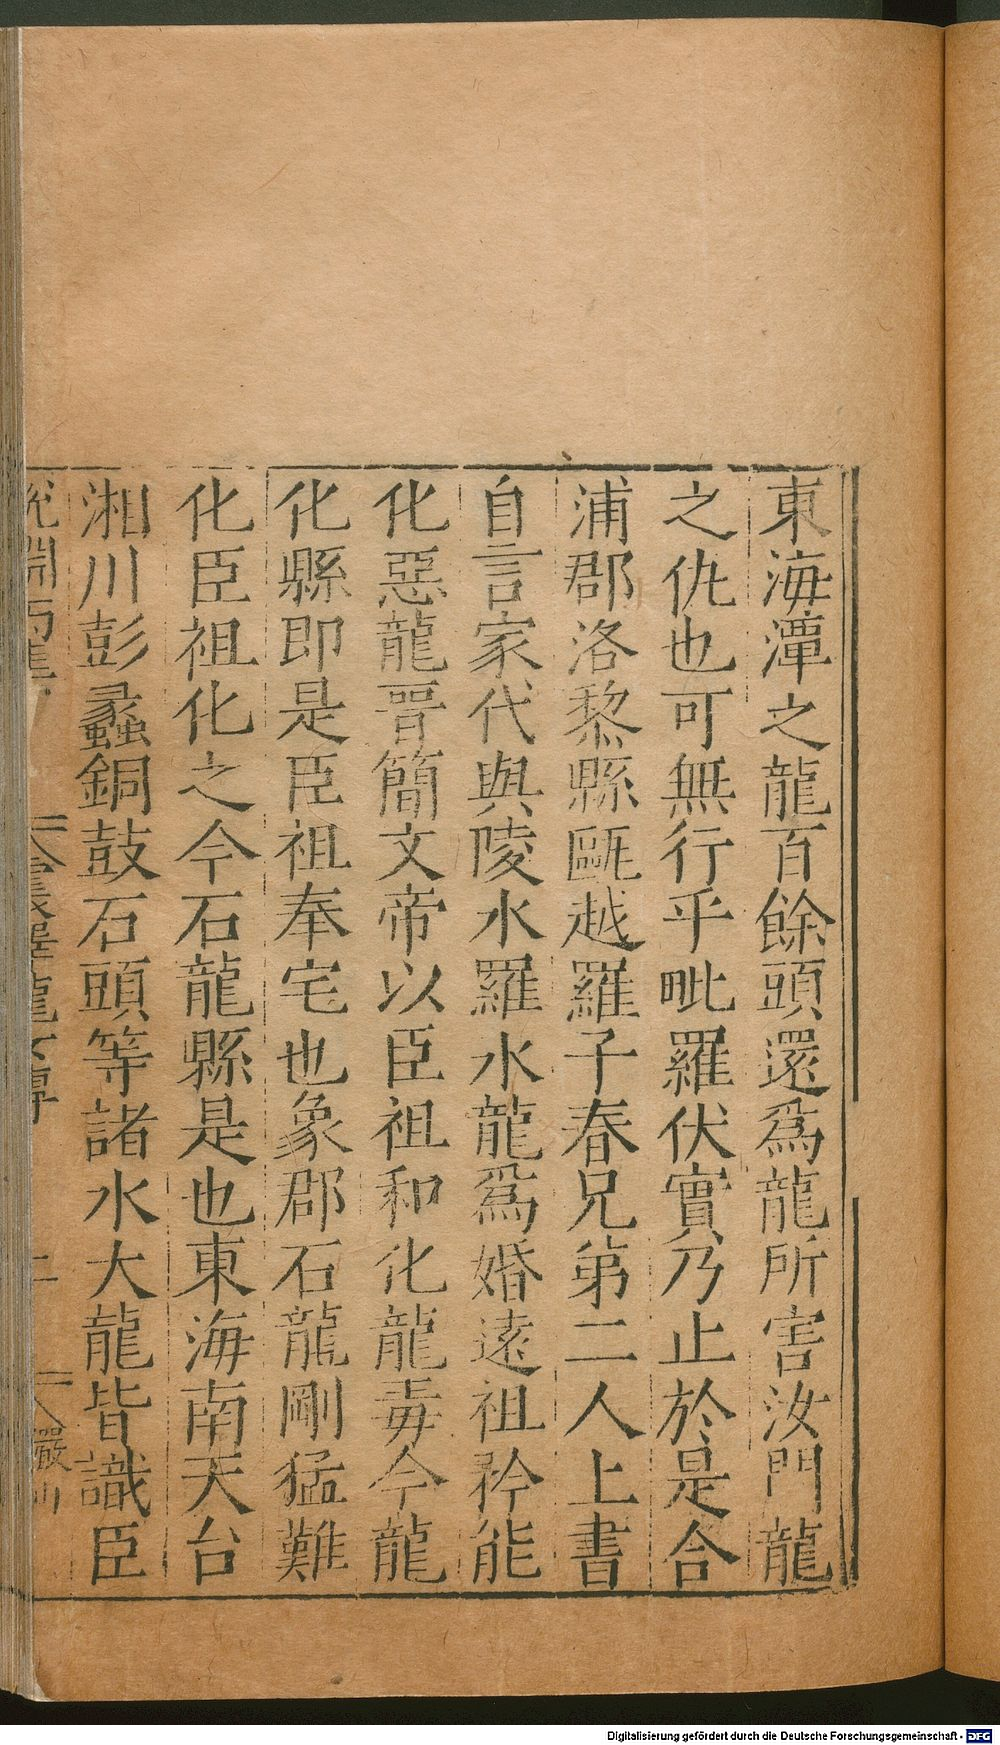 東海潭之龍百餘頭還爲龍所害汝門龍
之仇也可無行乎毗羅伏實乃止於是合
浦郡洛黎縣甌越羅子春兄第二人上書
自言家代與陵水羅水龍爲婚遠祖矜能
化惡龍晉簡文帝以臣祖和化龍毒今龍
化縣即是臣祖奉宅也象郡石龍剛猛難
化臣祖化之今石龍縣是也東海南天台
湘川彭蠡銅鼓石頭等諸水大龍皆識臣
二
Digitalisierung gefördert durch die Deutsche Forschungsgemeinschaft - DFG